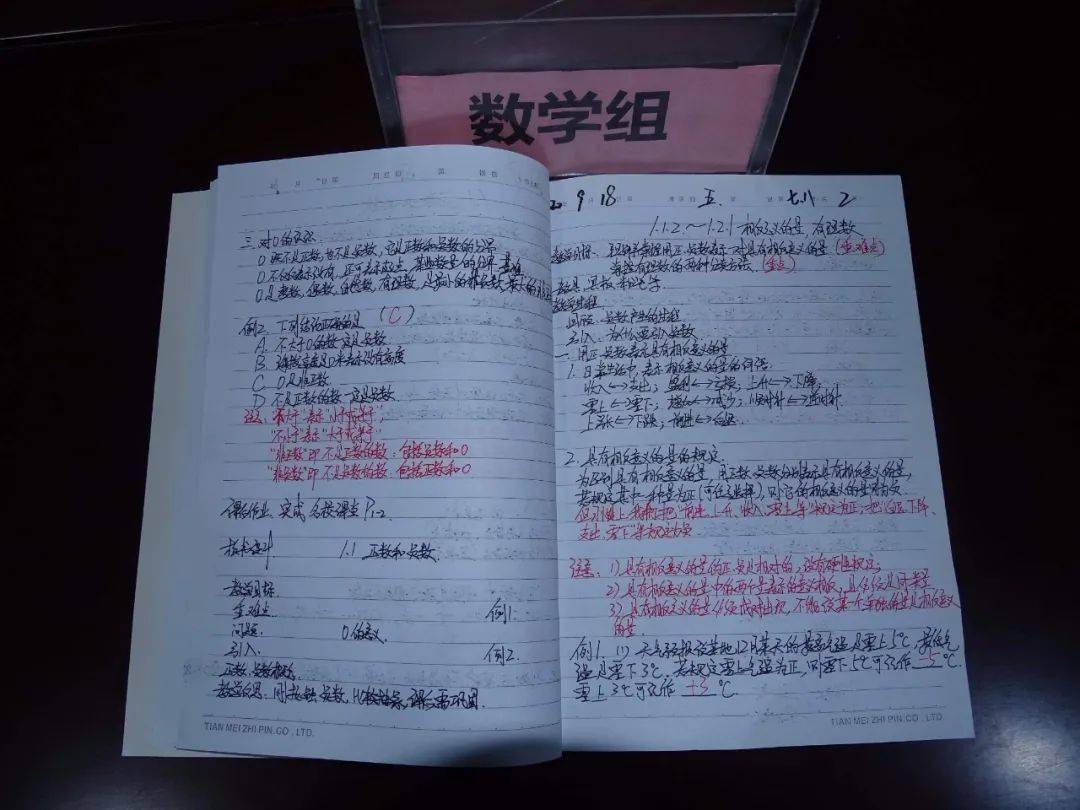 数学组
三、对0的意义
0既不是正数,也不是负数,它是正数和负数的分界
0不仅仅表示没有,还可表示起点,某些数量的分界,基准
0是整数,偶数,自然数,有理数,是最小的非负数,最大的非正
例2. 下列结论正确的是 (C)
A. 不大于0的数一定是负数
B. 海拔高度是0米表示没有高度
C. 0是非正数
D. 不是正数的数一定是负数
注意:"不大于"表示"小于或等于";
"不小于"表示"大于或等于"
"非正数"即不是正数的数:包括负数和0
"非负数"即不是负数的数:包括正数和0
课后作业:完成名校课堂P1-2
板书设计 1.1 正数和负数
教学目标
重难点 例1.
问题. 0的意义
引入. 例2.
正数、负数概念
教学反思:刚接触负数,比较抽象,课后需巩固.
TIAN MEI ZHI PIN.CO., LTD.
9 18 五 七.八 2
1.1.2~1.2.1 相反意义的量,有理数
教学目标:理解并掌握用正、负数表示一对具有相反意义的量(重难点)
掌握有理数的两种分类方法.(重点)
教具:黑板、粉笔等
教学过程
回顾:负数产生的过程
引入:为什么要引入负数
一、用正、负数表示具有相反意义的量
1. 日常生活中,表示相反意义的量的词语:
收入↔支出;盈利↔亏损;上升↔下降;
零上↔零下;增加↔减少;顺时针↔逆时针
上涨↔下跌;前进↔后退
2. 具有相反意义的量的规定
为区别具有相反意义的量,用正数、负数分别表示具有相反意义的量,
若规定其中一种量为正(可任意选择),则它的相反意义的量为负
但习惯上我们把"前进、上升、收入、零上等"规定为正;把"后退、下降、
支出、零下"等规定为负
注意:1) 具有相反意义的量的正、负是相对的,没有硬性规定;
2) 具有相反意义的量中的两个量表示的意义相反,且必须是同类量
3) 具有相反意义的量必须成对出现,不能说某一个单独的量是相反意义
的量
例1. (1) 天气预报说某地12月某天的最高气温是零上5℃,最低气
温是零下3℃,若规定零上气温为正,则零下5℃可记作 -5 ℃.
零上3℃可记作 +3 ℃
TIAN MEI ZHI PIN.CO., LTD.